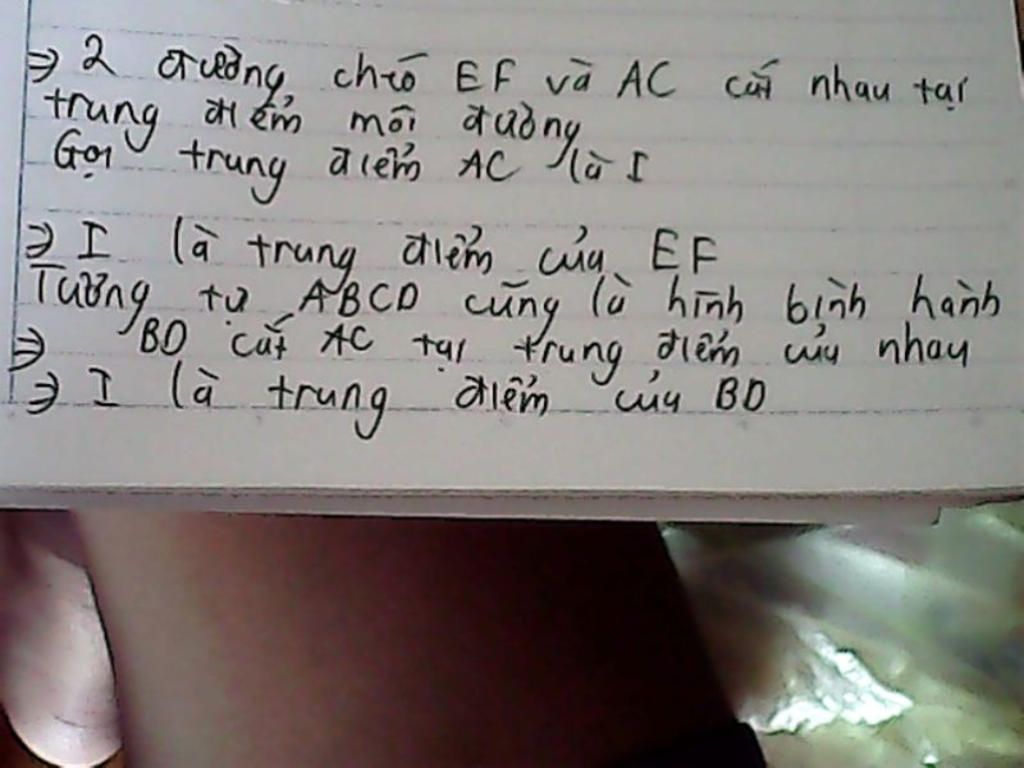 ⇒ 2 đường chéo EF và AC cắt nhau tại
trung điểm mỗi đường
Gọi trung điểm AC là I
⇒ I là trung điểm của EF
Tương tự ABCD cũng là hình bình hành
⇒ BD cắt AC tại trung điểm của nhau
⇒ I là trung điểm của BD